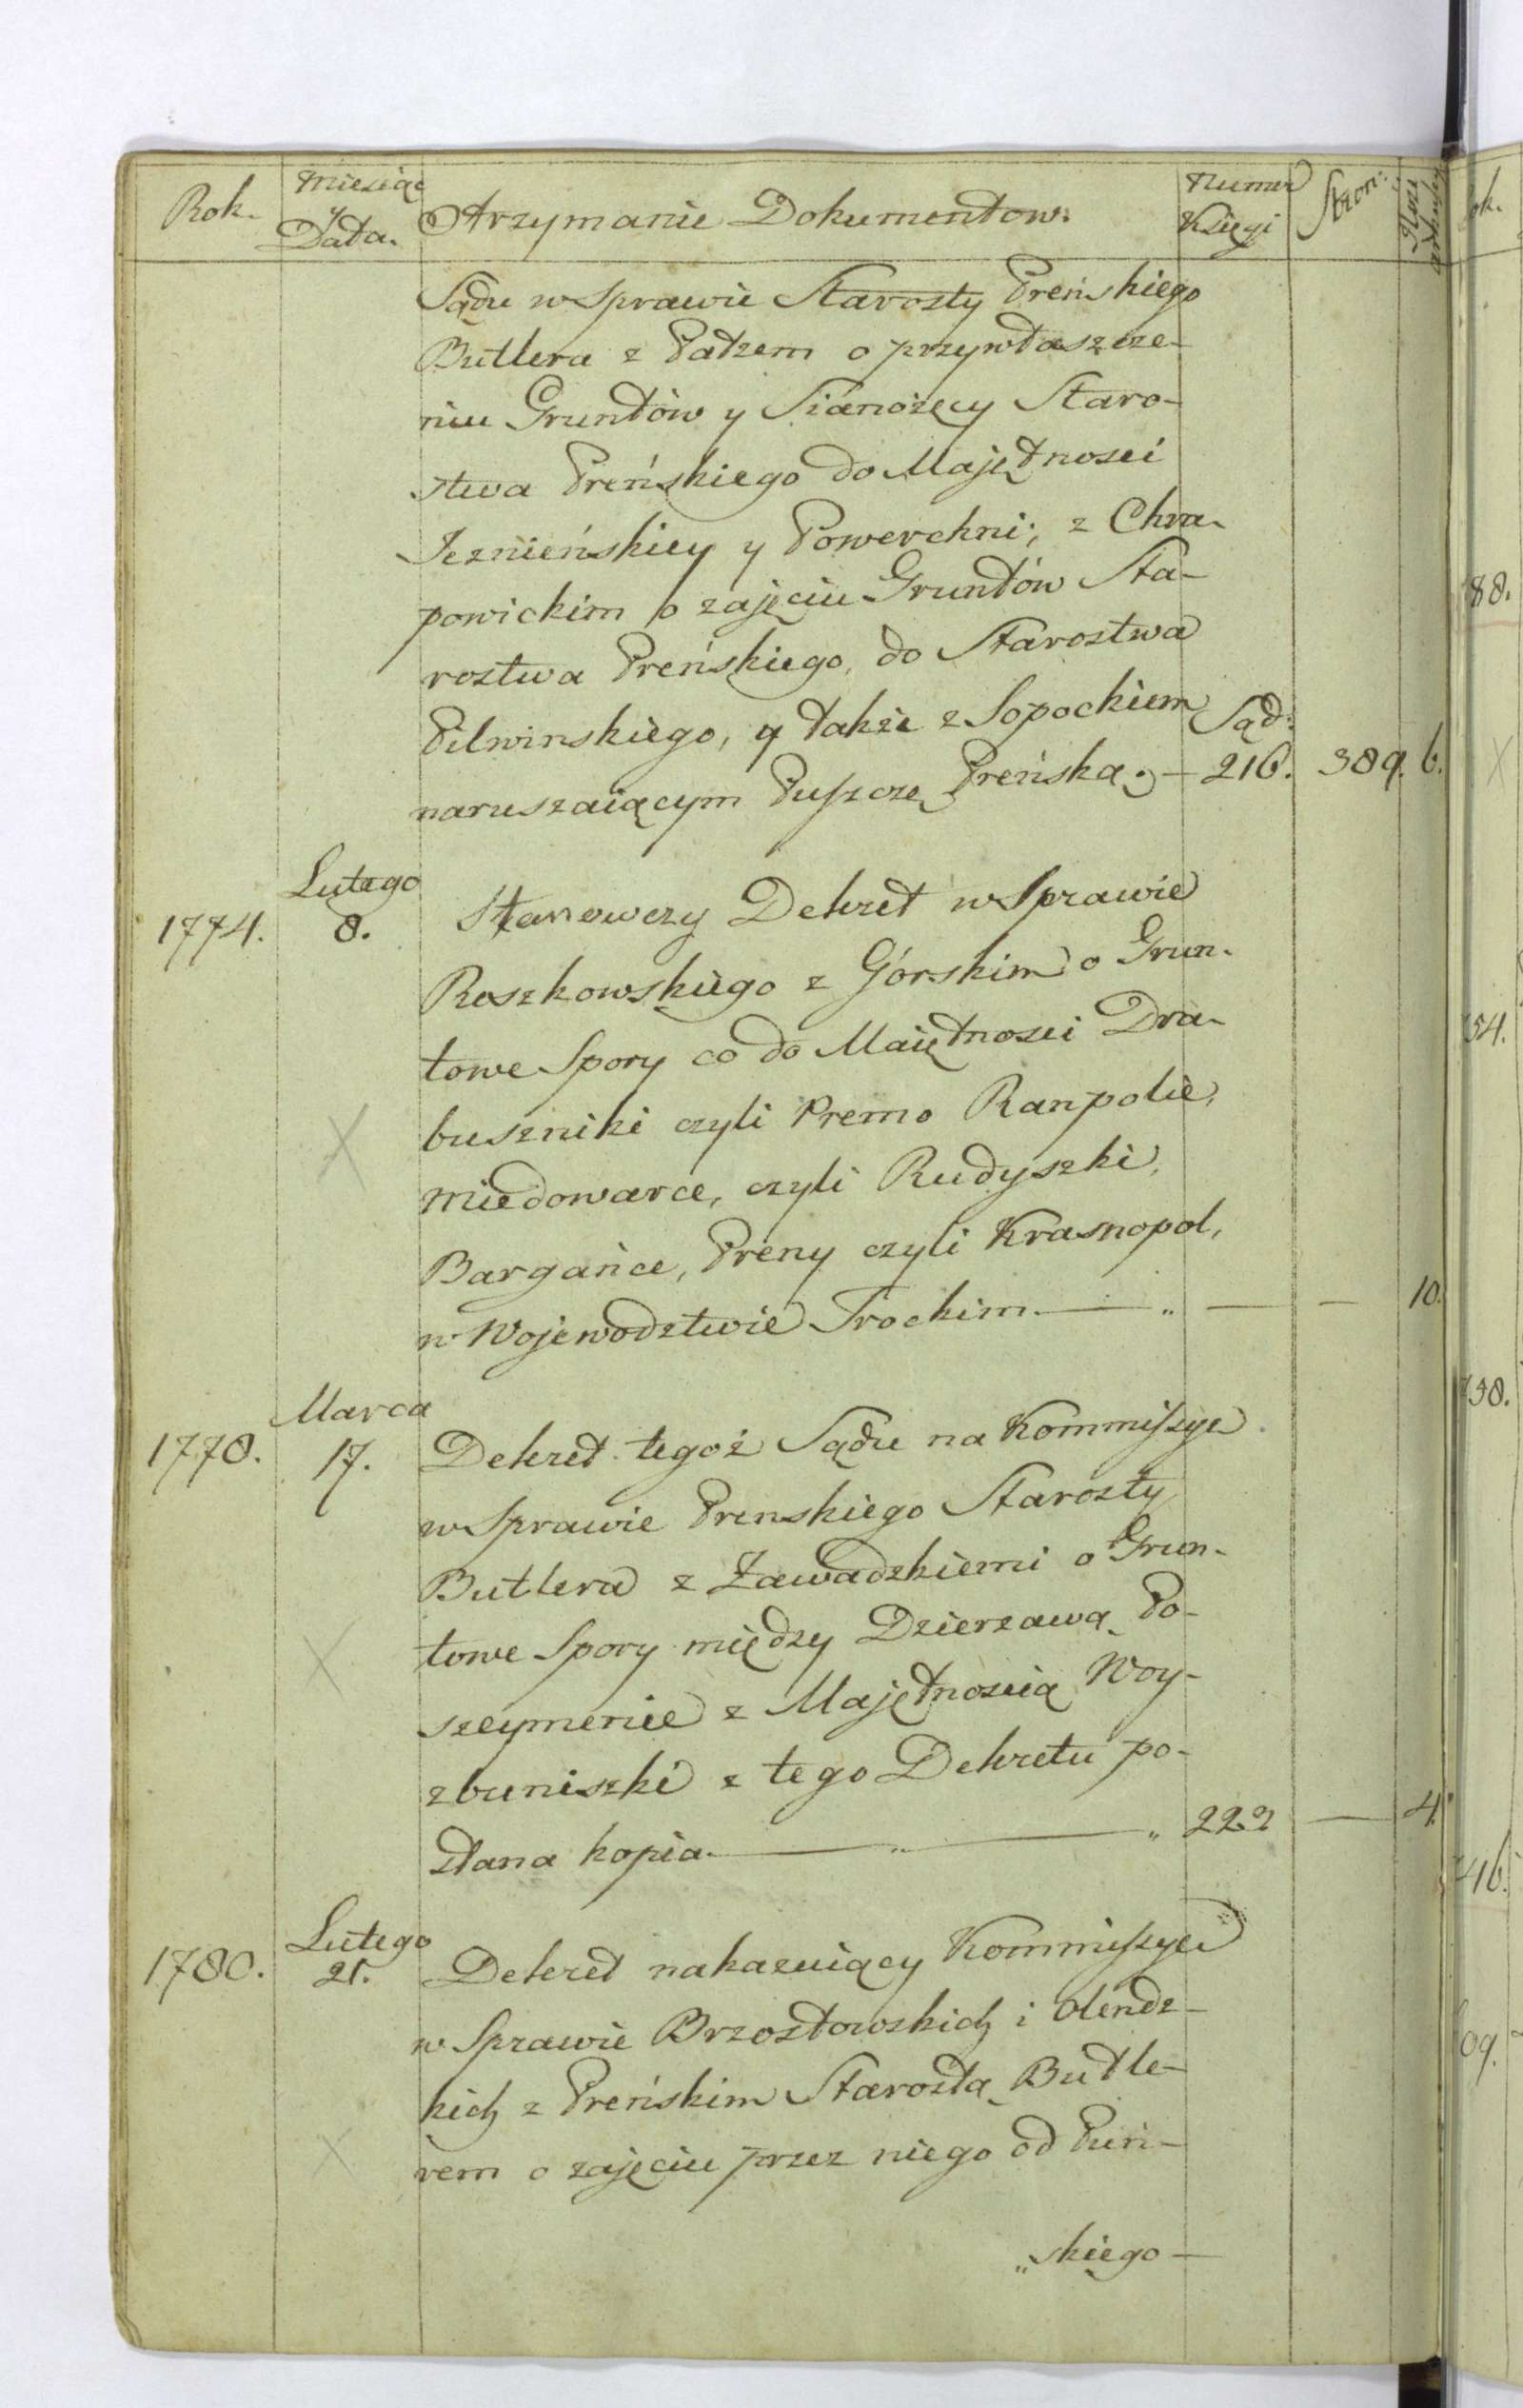 Rok. Miesiąc y Data. Otrzymanie Dokumentow. Numer Księgi Stron: Ilość arkuszy
Sądu w Sprawie Starosty Preńskiego
Butlera z Patzem o przywłaszcze-
niu Gruntów y Sianożęcy Staro-
stwa Preńskiego do Majętnosci
Jeznieńskiey y Powerchni; z Chra-
powickim o zajęciu Gruntów Sta-
rostwa Preńskiego, do Starostwa
Pilwinskiego, y także z Sopockiem Sąd:
naruszaiącym Puszczę Preńską. — 216. 389. 6.
Lutego
1774. 8. Stanowczy Dekret w Sprawie
Roszkowskiego z Górskim o Grun-
towe Spory co do Maiętnosci Dra-
buszniki czyli Premo Ranpolie,
Miedowarce, czyli Rudyszki,
Bargańce, Preny czyli Krasnopol,
w Wojewodztwie Trockim. — " — — 10.
Marca
1778. 17. Dekret tegoż Sądu na Kommissye
w Sprawie Prenskiego Starosty
Butlera z Zawadzkiemi o Grun-
towe Spory między Dzierzawą Po-
szeymenie z Majętnoscią Woy-
zbuniszki z tego Dekretu po-
dana kopia. — " — " 222 — 4.
Lutego
1780. 21. Dekret nakazuiący Kommissye
w Sprawie Brzostowskich i Olendz-
kich z Preńskim Starostą Butle-
rem o zajęciu przez niego od Puń-
„skiego —